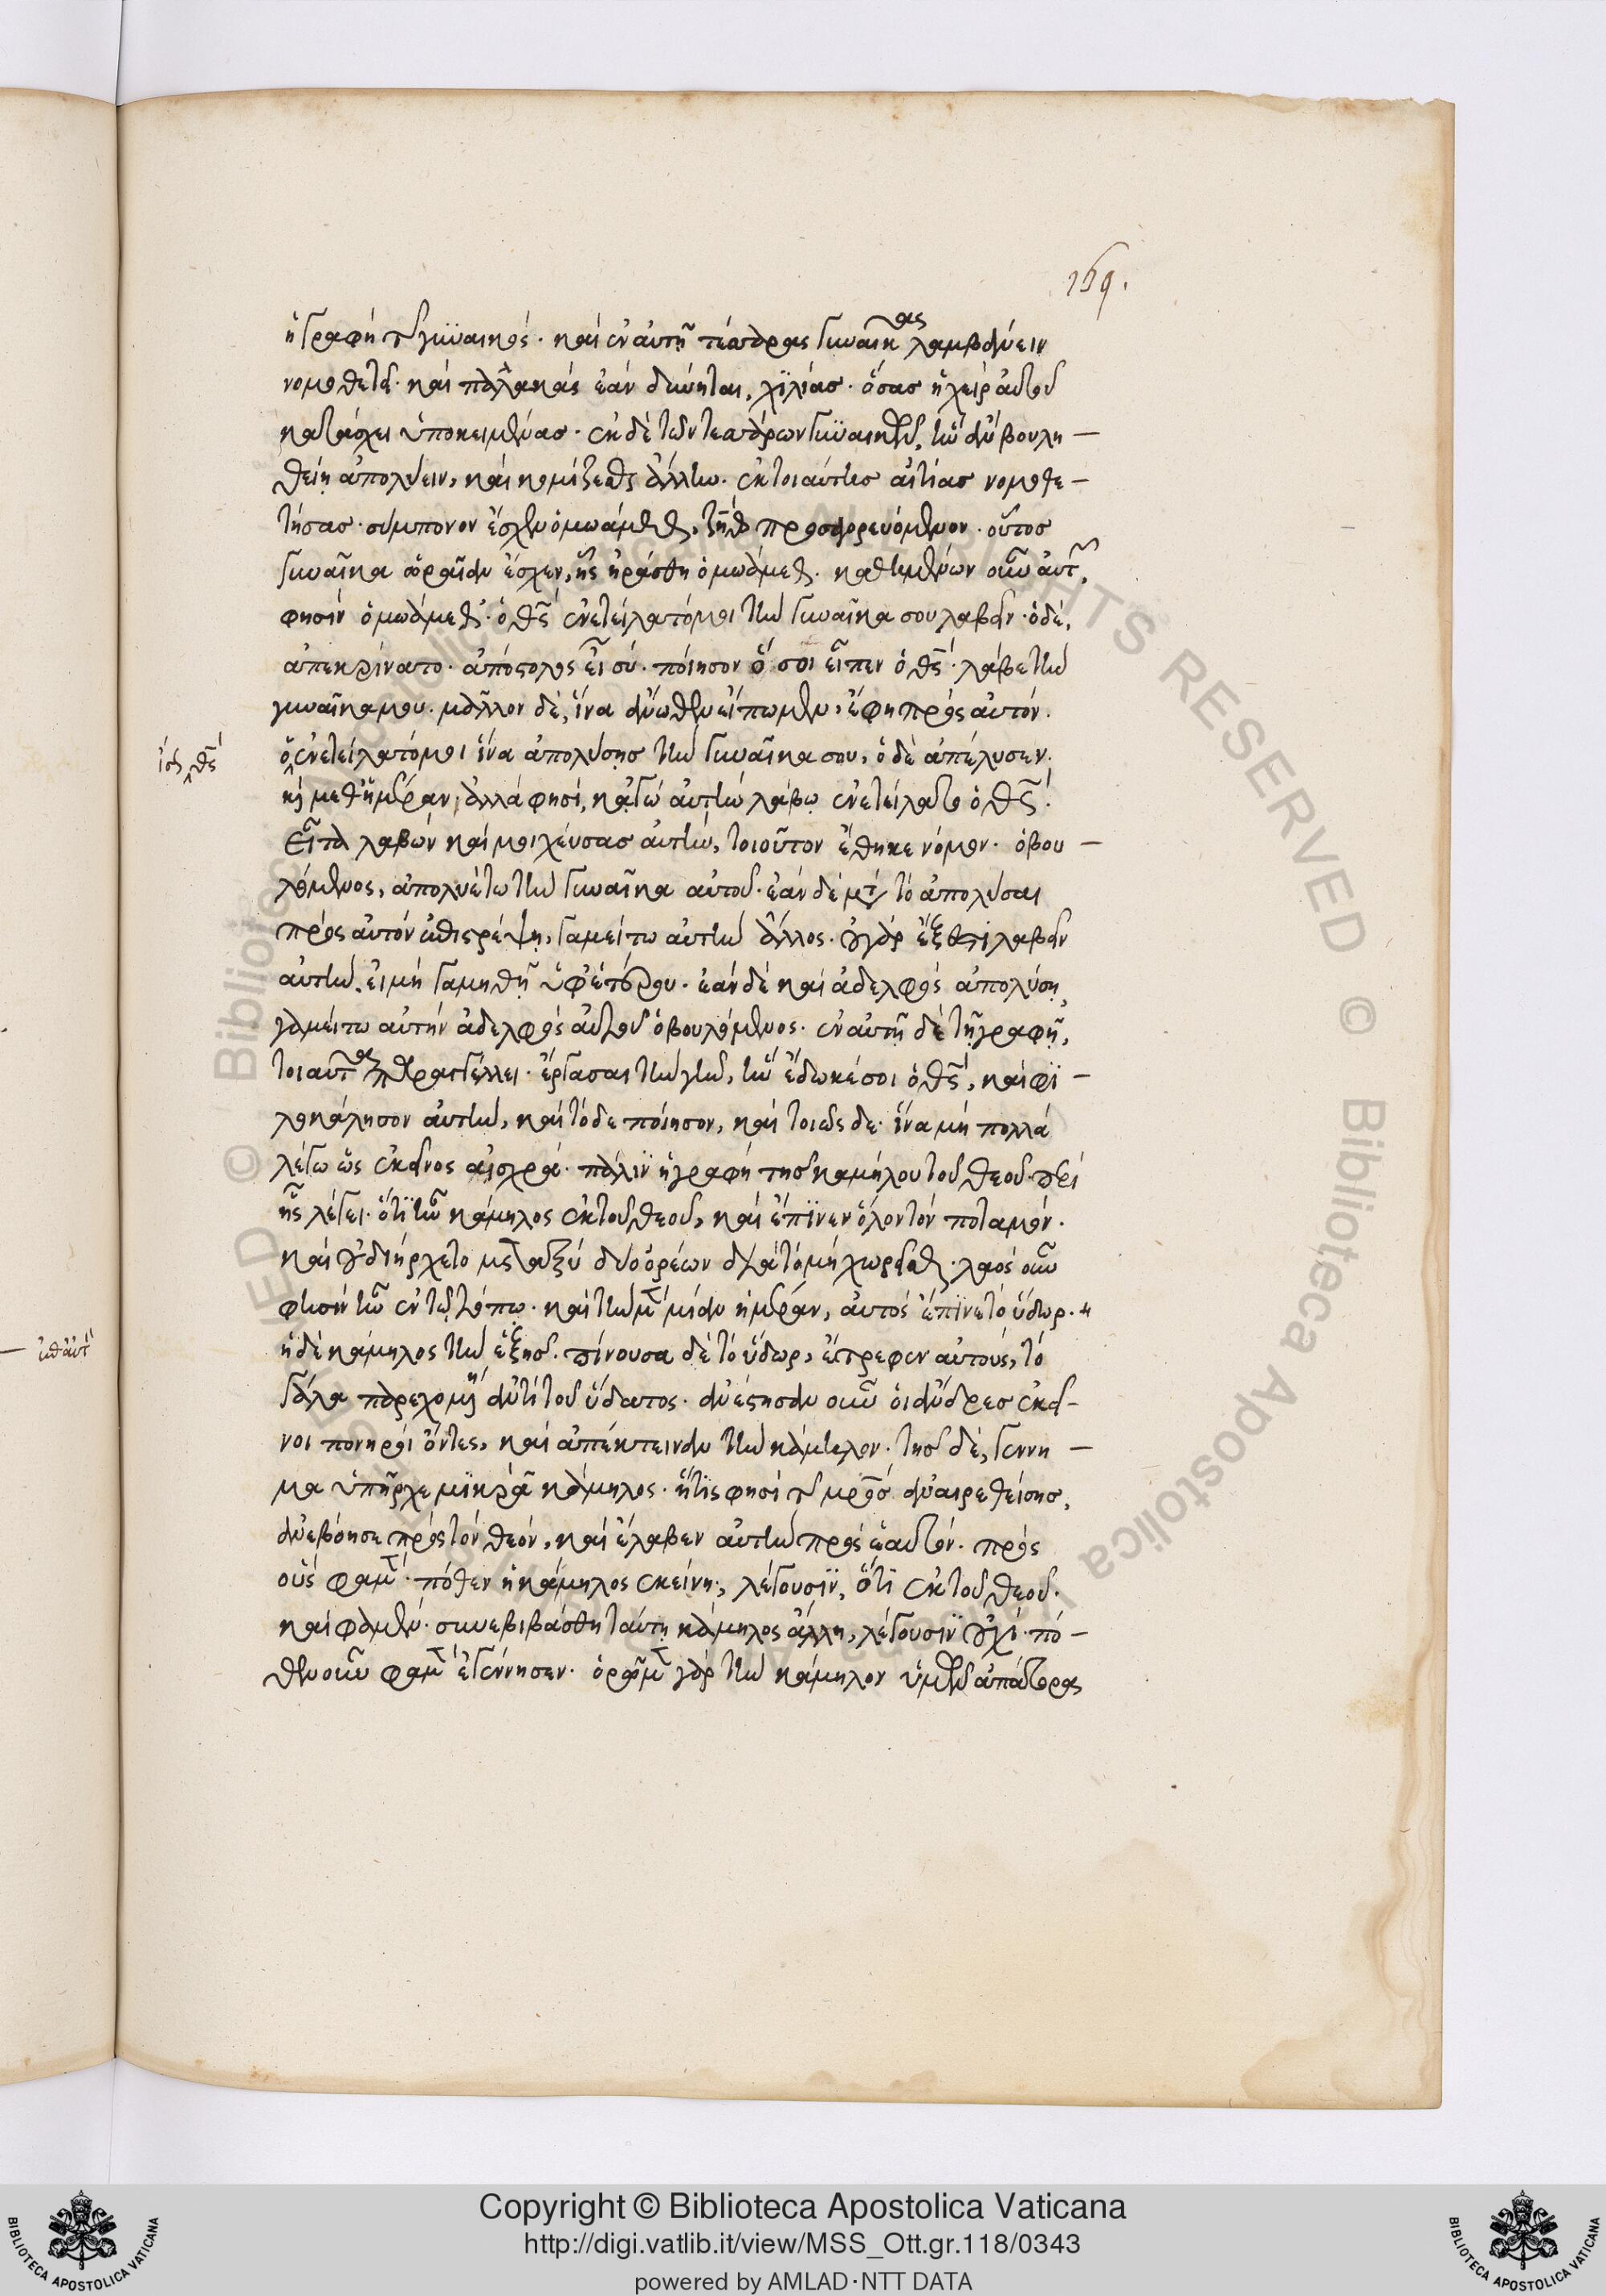 169.
ἡ γραφὴ τῆς γυναικός. καὶ ἐν αὐτῇ τέσσαρας γυναῖκας λαμβάνειν
νομοθετεῖ. καὶ παλλακὰς ἐὰν δύνηται, χιλίας. ὅσας ἡ χεὶρ αὐτοῦ
κατάσχει ὑποκειμένας. ἐκ δὲ τῶν τεσσάρων γυναικῶν, ἣν ἂν βουλη-
θείη ἀπολύειν, καὶ κομίζεσθαι ἄλλην. ἐκ τοιαύτης αἰτίας νομοθε-
τήσας. σύμπονον ἔσχεν ὁ μωάμεθ, ζηὶδ προσαγορευόμενον. οὗτος
γυναῖκα ὡραίαν ἔσχεν, ἧς ἠράσθη ὁ μωάμεθ. καθημένων οὖν αὐτῶν,
φησὶν ὁ μωάμεθ. ὁ θεὸς ἐνετείλατό μοι τὴν γυναῖκα σου λαβεῖν. ὁ δὲ,
ἀπεκρίνατο. ἀπόστολος εἶ σύ. ποίησον ὅ σοι εἶπεν ὁ θεός. λάβε τὴν
γυναῖκα μου. μᾶλλον δὲ, ἵνα ἄνωθεν εἴπωμεν, ἔφη πρὸς αὐτόν.
ὁ ἐνετείλατό μοι ἵνα ἀπολύσῃς τὴν γυναῖκα σου, ὁ δὲ ἀπέλυσεν.
θεὸς
καὶ μεθ' ἡμέραν, ἀλλά φησι, κἀγὼ αὐτὴν λάβω ἐνετείλατο ὁ θεός.
εἶτα λαβὼν καὶ μοιχεύσας αὐτὴν, τοιοῦτον ἔθηκε νόμον. ὁ βου-
λόμενος, ἀπολυέτω τὴν γυναῖκα αὐτοῦ. ἐὰν δὲ μετὰ τὸ ἀπολῦσαι
πρὸς αὐτὸν ἐπιστρέψῃ, γαμείτω αὐτὴν ἄλλος. οὐ γὰρ ἔξεστι λαβεῖν
αὐτὴν, εἰ μὴ γαμηθῇ ὑφ' ἑτέρου. ἐὰν δὲ καὶ ἀδελφὸς ἀπολύσῃ,
γαμείτω αὐτὴν ἀδελφὸς αὐτοῦ ὁ βουλόμενος. ἐν αὐτῇ δὲ τῇ γραφῇ,
τοιαῦτα παραγγέλλει. ἔργασαι τὴν γῆν, ἣν ἔδωκέ σοι ὁ θεὸς, καὶ φι-
λοκάλησον αὐτὴν, καὶ τόδε ποίησον, καὶ τοιῶς δε. ἵνα μὴ πολλὰ
λέγω ὡς ἐκεῖνος αἰσχρά. πάλιν ἡ γραφὴ τῆς καμήλου τοῦ θεοῦ. περὶ
ἧς λέγει. ὅτι ἦν κάμηλος ἐκ τοῦ θεοῦ, καὶ ἔπινεν ὅλον τὸν ποταμόν.
καὶ οὐ διήρχετο μεταξὺ δύο ὀρέων διὰ τὸ μὴ χωρεῖσθαι. λαὸς οὖν
φησὶν ἦν ἐν τῷ τόπῳ. καὶ τὴν μὲν μίαν ἡμέραν, αὐτὸς ἔπινε τὸ ὕδωρ.
ἡ δὲ κάμηλος τὴν ἑξῆς. πίνουσα δὲ τὸ ὕδωρ, ἔτρεφεν αὐτοὺς, τὸ
γάλα παρεχομένη ἀντὶ τοῦ ὕδατος. ἀνέστησαν οὖν οἱ ἄνδρες ἐκεῖ-
νοι πονηροὶ ὄντες, καὶ ἀπέκτειναν τὴν κάμηλον. τῆς δὲ, γέννη-
μα ὑπῆρχε μικρὰ κάμηλος. ἥτις φησὶ τῆς μητρὸς ἀναιρεθείσης,
ἀνεβόησε πρὸς τὸν θεὸν, καὶ ἔλαβεν αὐτὴν πρὸς ἑαυτόν. πρὸς
οὓς φαμέν. πόθεν ἡ κάμηλος ἐκείνη; λέγουσιν, ὅτι ἐκ τοῦ θεοῦ.
καὶ φαμέν. συνεβιβάσθη ταύτῃ κάμηλος ἄλλη, λέγουσιν οὐχί. πό-
θεν οὖν φαμὲν ἐγέννησεν. ὁρῶμεν γὰρ τὴν κάμηλον ὑμῶν ἀπάτορα
Copyright © Biblioteca Apostolica Vaticana
http://digi.vatlib.it/view/MSS_Ott.gr.118/0343
powered by AMLAD·NTT DATA
BIBLIOTECA APOSTOLICA VATICANA
BIBLIOTECA APOSTOLICA VATICANA